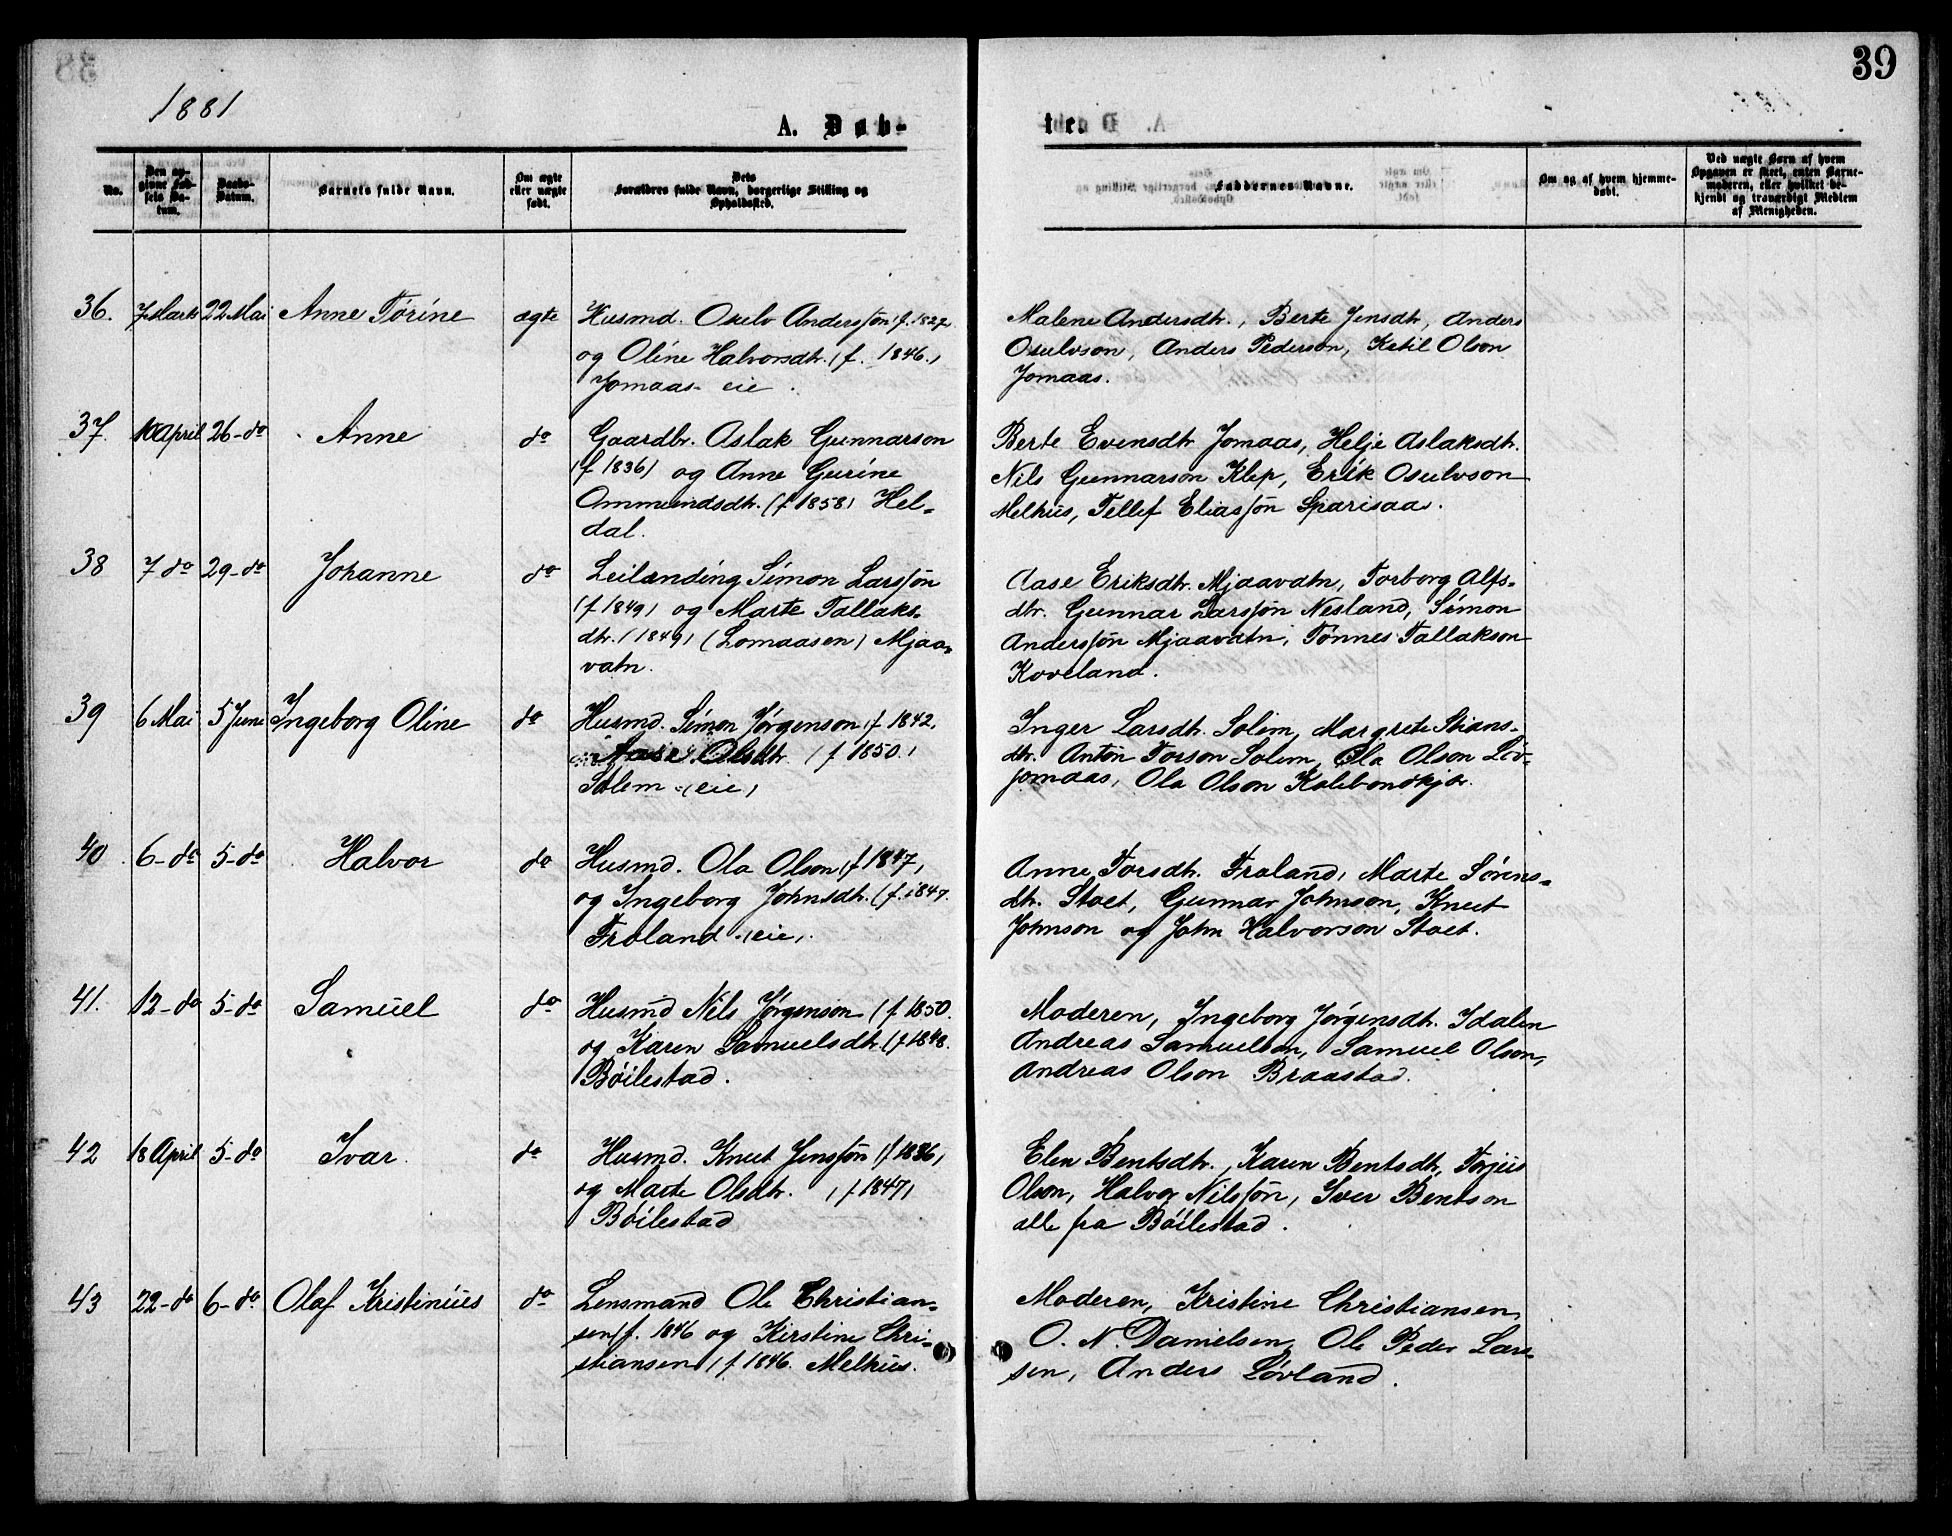 39
1881
A. Døb-
te.
No.
Den an-
givne Fød-
sels Da-
tum.
Daabs-
Datum.
Barnets fulde Navn.
Om ægte
eller uægte
født.
Dets
Forældres fulde Navn, borgerlige Stilling og
Opholdssted.
Faddernes Navne.
Om og af hvem hjemme-
døbt.
Ved uægte Børn af hvem
Opgaven er skeet, enten Barne-
moderen, eller hvilket be-
kjendt og troværdigt Medlem
af Menigheden.
36. 7 Marts 22 Mai Anne Tørine ægte
Husmd. Osulv Anderssøn (f. 1827
og Oline Halvorsdtr. (f. 1846.)
Jomaas eie.
Malene Andersdtr., Berte Jensdtr, Anders
Osulvson, Anders Pederson, Ketil Olson
Jomaas.
37. 10 April 26-do Anne do
Gaardbr. Aslak Gunnarson
(f 1836) og Anne Gurine
Ommundsdtr. (f 1858) Hel-
dal.
Berte Evensdtr Jomaas, Helje Aslaksdtr.
Nils Gunnarson Klep, Erik Osulvson
Melhus, Tellef Eliassøn Sparisaas.
38 7 do 29-do Johanne do
Leilænding Simon Larssøn
(f 1849) og Marte Tallaks-
dtr. (1849) (Lomaasen) Mjaa-
vatn.
Aase Eriksdtr. Mjaavatn, Torborg Alfs-
dtr. Gunnar Larssøn Nesland, Simon
Anderssøn Mjaavatn, Tønnes Tallakson
Koveland.
39 6 Mai 5 June Ingeborg Oline do
Husmd. Simon Jørgenson (f. 1842,
og Aase Olsdtr. (f 1850.)
Solem (eie)
Inger Larsdtr. Solem, Margrete Stians-
dtr. Anton Torson Solem, Ola Olson Løv-
jomaas, Ola Olson Kalebondkjær.
40 6-do 5-do Halvor do
Husmd. Ola Olson (f 1847,
og Ingeborg Johnsdtr. (f. 1847.
Froland (eie).
Anne Torsdtr. Froland, Marte Sørens-
dtr. Stoet, Gunnar Johnson, Knut
Johnson og John Halvorson Stoet.
41. 12-do 5-do Samuel do
Husmd Nils Jørgenson (f 1850.
og Karen Samuelsdtr. (f 1848.
Bøilestad.
Moderen, Ingeborg Jørgensdtr. Idalen
Andreas Samuelson, Samuel Olson,
Andreas Olson Braastad.
42 18 April 5-do Ivar do
Husmd. Knut Jenssøn (f 1836,
og Marte Olsdtr. (f 1847)
Bøilestad
Elen Bentsdtr., Karen Bentsdtr, Torjus
Olson, Halvor Nilssøn, Iver Bentson
alle fra Bøilestad.
43 22-do 6-do Olaf Kristinius do
Lensmand Ole Christian-
sen (f. 1846 og Kirstine Chri-
stiansen (f 1846. Melhus.
Moderen, Kristine Christiansen,
O. N. Danielsen, Ole Peder Lars-
sen, Anders Løvland.